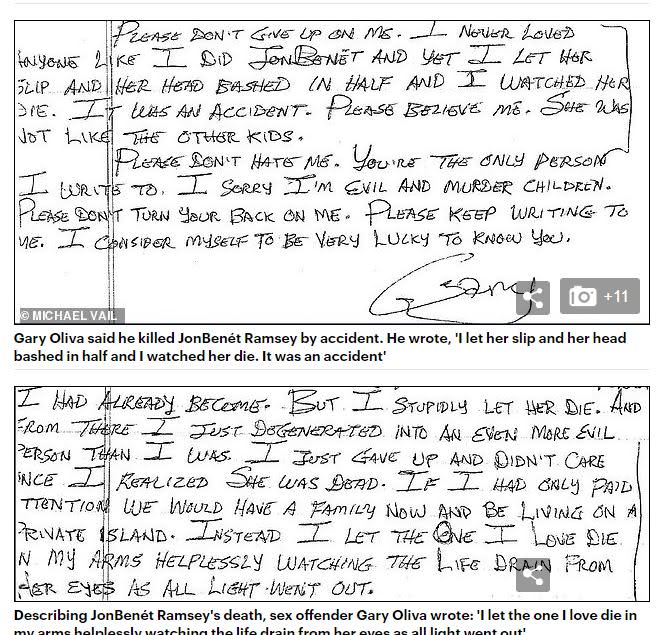 PLEASE DON'T GIVE UP ON ME. I NEVER LOVED
ANYONE LIKE I DID JONBENÉT AND YET I LET HER
SLIP AND HER HEAD BASHED IN HALF AND I WATCHED HER
DIE. IT WAS AN ACCIDENT. PLEASE BELIEVE ME. SHE WAS
NOT LIKE THE OTHER KIDS.
PLEASE DON'T HATE ME. YOU'RE THE ONLY PERSON
I WRITE TO. I SORRY I'M EVIL AND MURDER CHILDREN.
PLEASE DON'T TURN YOUR BACK ON ME. PLEASE KEEP WRITING TO
ME. I CONSIDER MYSELF TO BE VERY LUCKY TO KNOW YOU.
Gary
+11
© MICHAEL VAIL
Gary Oliva said he killed JonBenét Ramsey by accident. He wrote, 'I let her slip and her head
bashed in half and I watched her die. It was an accident'
I HAD ALREADY BECOME. BUT I STUPIDLY LET HER DIE. AND
FROM THERE I JUST DEGENERATED INTO AN EVEN MORE EVIL
PERSON THAN I WAS. I JUST GAVE UP AND DIDN'T CARE
INCE I REALIZED SHE WAS DEAD. IF I HAD ONLY PAID
TTENTION WE WOULD HAVE A FAMILY NOW AND BE LIVING ON A
PRIVATE ISLAND. INSTEAD I LET THE ONE I LOVE DIE
N MY ARMS HELPLESSLY WATCHING THE LIFE DRAIN FROM
HER EYES AS ALL LIGHT WENT OUT.
Describing JonBenét Ramsey's death, sex offender Gary Oliva wrote: 'I let the one I love die in
my arms helplessly watching the life drain from her eyes as all light went out'